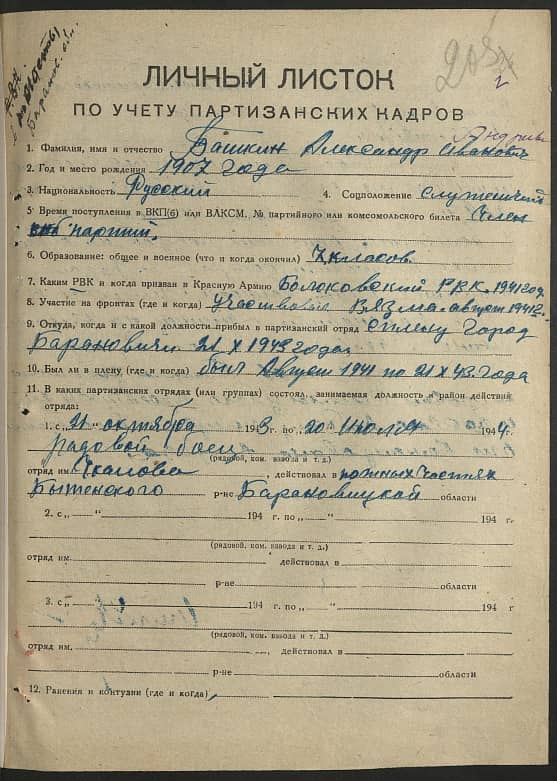 ЛИЧНЫЙ ЛИСТОК
ПО УЧЕТУ ПАРТИЗАНСКИХ КАДРОВ
1. Фамилия, имя и отчество Башкин Александр Иванович
2. Год и место рождения 1907 года
3. Национальность Русский 4. Соцположение Служещий
5. Время поступления в ВКП(б) или ВЛКСМ, № партийного или комсомольского билета Член
партии.
6. Образование: общее и военное (что и когда окончил) 7 класов
7. Каким РВК и когда призван в Красную Армию РВК. 1941 год.
8. Участие на фронтах (где и когда) участвовал Вязма август 1941 г.
9. Откуда, когда и с какой должности прибыл в партизанский отряд с плену город
Барановичи 21 X 1943 года
10. Был ли в плену (где и когда) был Август 1941 по 21 X 43. года
11. В каких партизанских отрядах (или группах) состоял, занимаемая должность и район действий
отряда:
1. с „21 октября 1943 г. по „20 Июля 1944 г.
рядовой боец
(рядовой, ком. взвода и т. д.)
отряд им. Чкалова, действовал в южных частях
Бытенского р-не Барановицкой области
2. с „ “ 194 г. по „ “ 194 г.
(рядовой, ком. взвода и т. д.)
отряд им. действовал в
р-не области
3. с „ “ 194 г. по „ “ 194 г
(рядовой, ком. взвода и т. д.)
отряд им. , действовал в
р-не области
12. Ранения и контузии (где и когда)